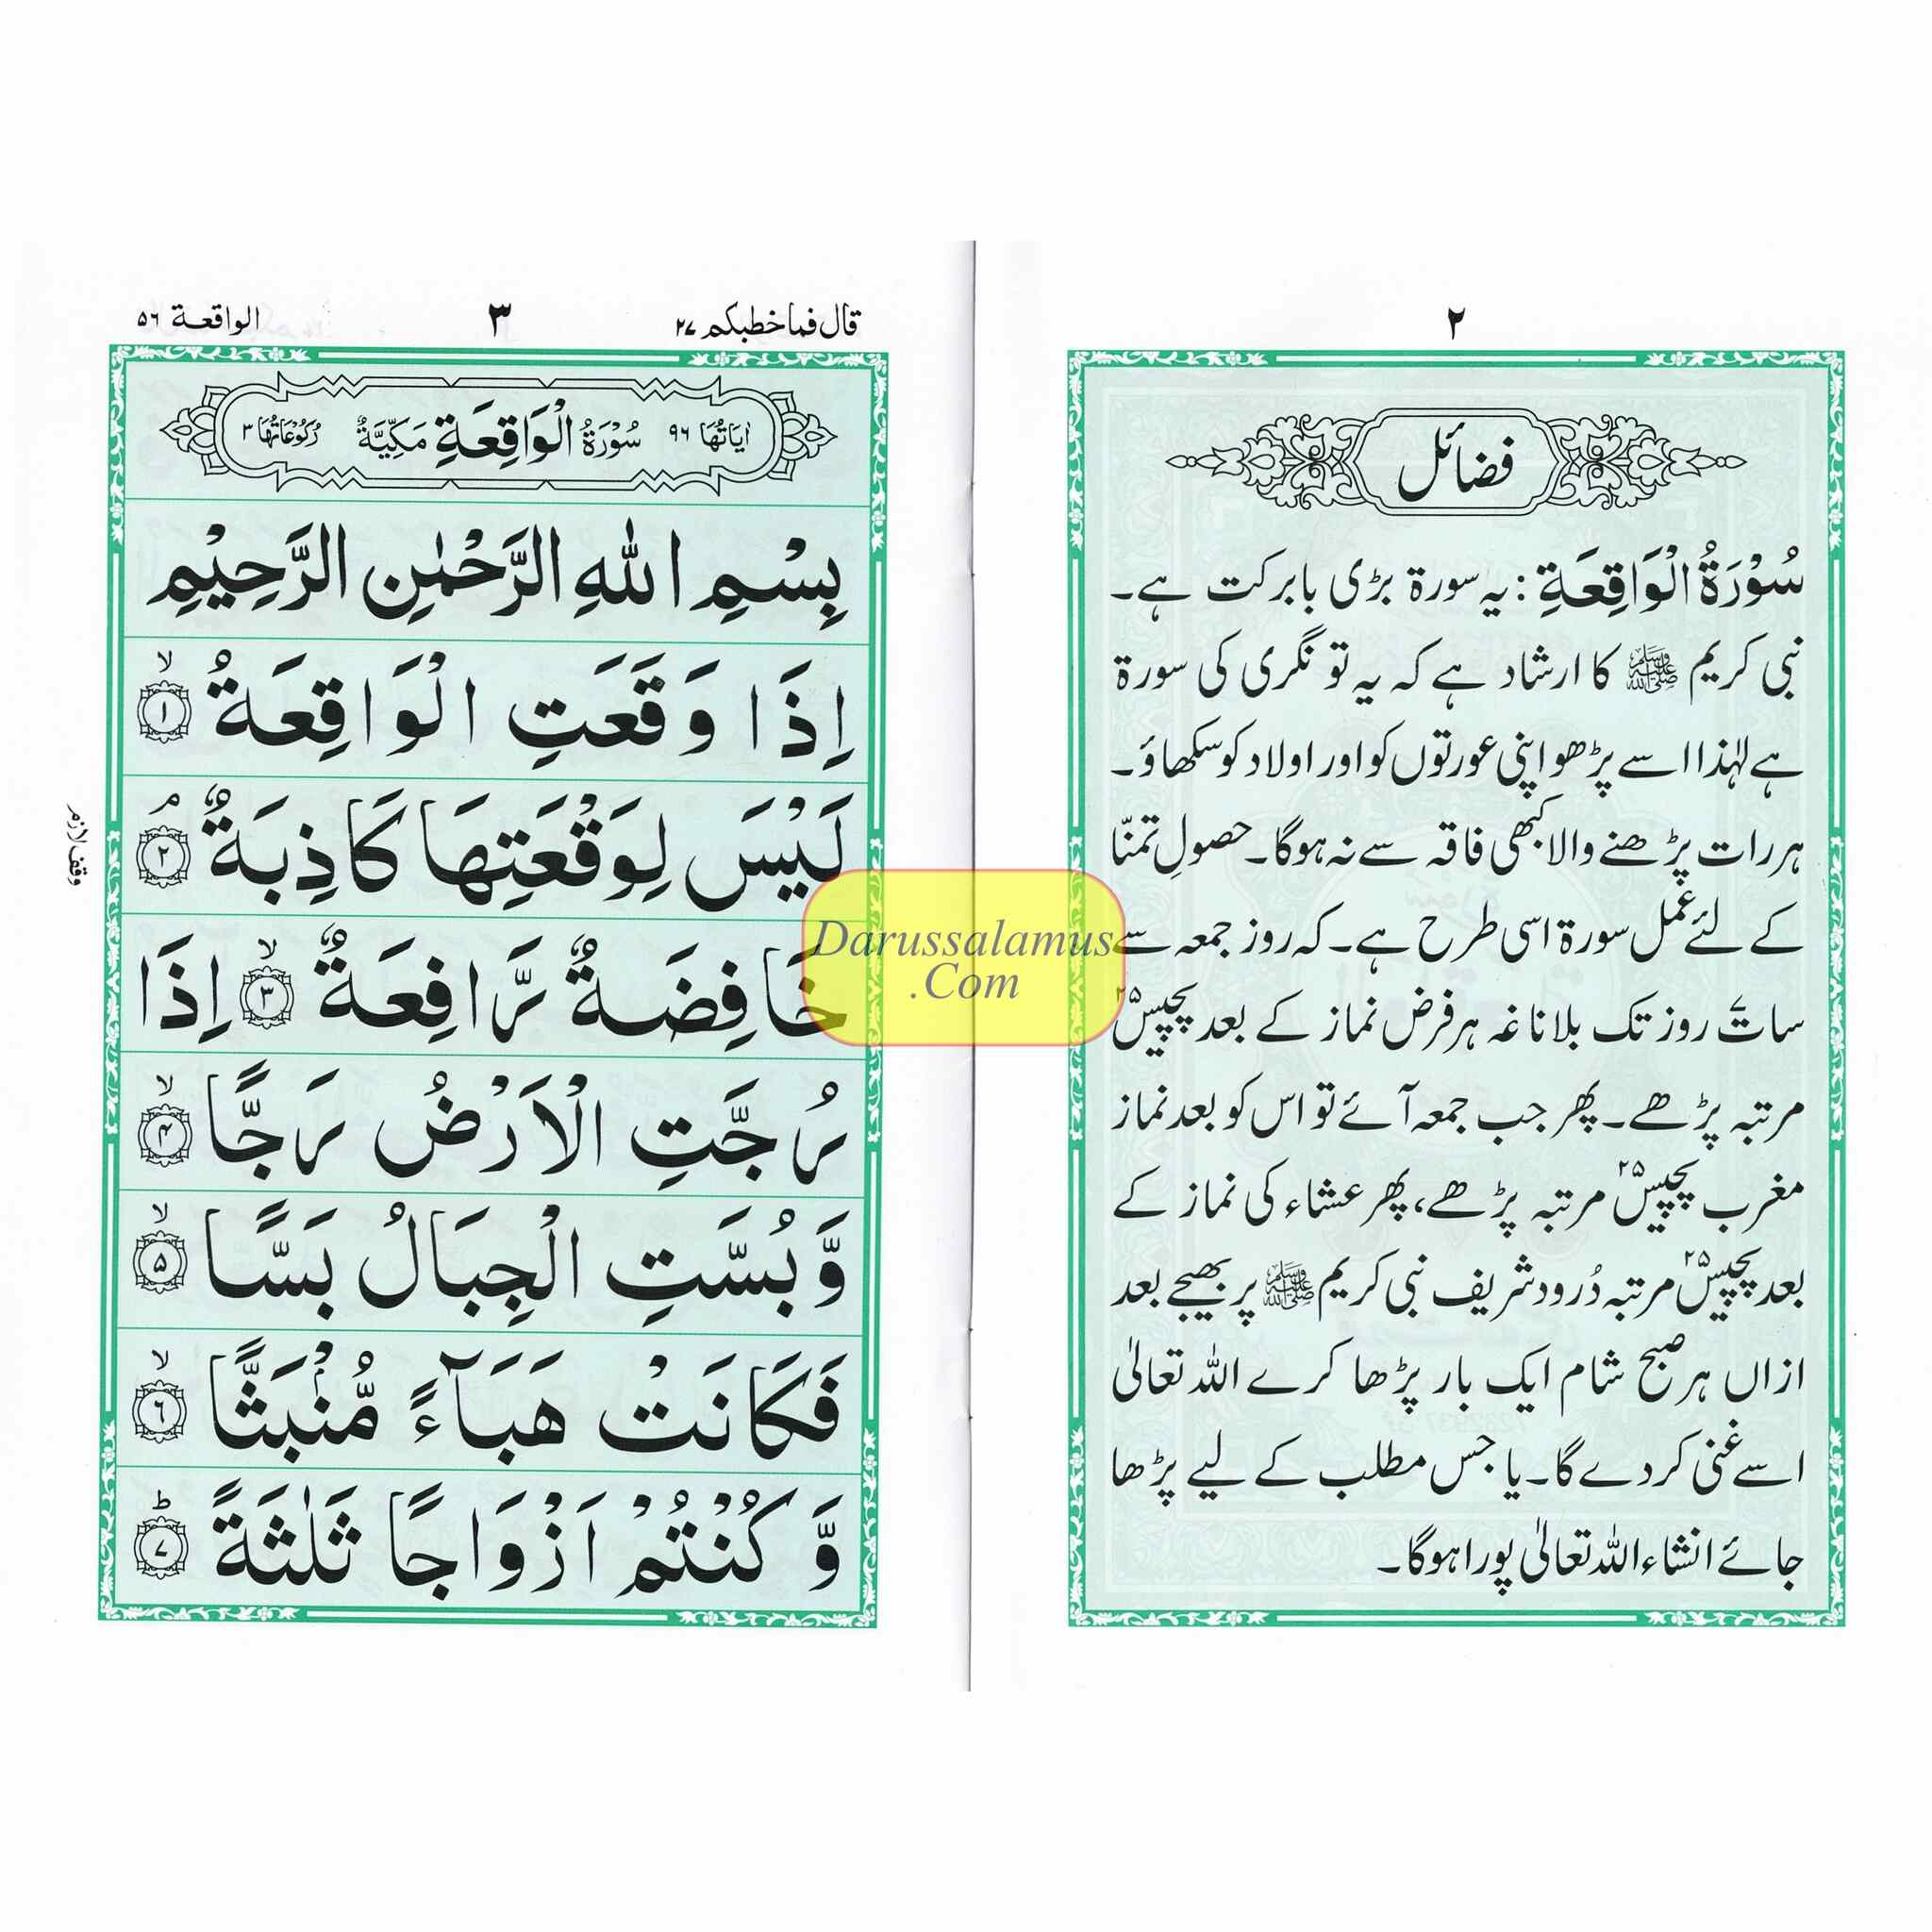 ۲
فضائل
سُوْرَةُ الْوَاقِعَةِ : یہ سورۃ بڑی بابرکت ہے۔
نبی کریم ﷺ کا ارشاد ہے کہ یہ تونگری کی سورۃ
ہے لہٰذا اسے پڑھو اپنی عورتوں کو اور اولاد کو سکھاؤ۔
ہر رات پڑھنے والا کبھی فاقہ سے نہ ہوگا۔ حصولِ تمنّا
کے لئے عمل سورۃ اسی طرح ہے۔ کہ روز جمعہ سے
سات روز تک بلاناغہ ہر فرض نماز کے بعد پچیس ۲۵
مرتبہ پڑھے۔ پھر جب جمعہ آئے تو اس کو بعد نماز
مغرب پچیس ۲۵ مرتبہ پڑھے، پھر عشاء کی نماز کے
بعد پچیس ۲۵ مرتبہ دُرود شریف نبی کریم ﷺ پر بھیجے بعد
ازاں ہر صبح شام ایک بار پڑھا کرے اللہ تعالیٰ
اسے غنی کر دے گا۔ یا جس مطلب کے لیے پڑھا
جائے انشاء اللہ تعالیٰ پورا ہوگا۔
قال فماخطبكم ۲۷ ۳ الواقعة ۵۶
اٰيَاتُهَا ۹۶ سُوْرَةُ الْوَاقِعَةِ مَكِّيَّةٌ رُكُوْعَاتُهَا ۳
بِسْمِ اللّٰهِ الرَّحْمٰنِ الرَّحِيْمِ
اِذَا وَقَعَتِ الْوَاقِعَةُ ۙ ۱
لَيْسَ لِوَقْعَتِهَا كَاذِبَةٌ ۘ ۲
وقف لازم
خَافِضَةٌ رَّافِعَةٌ ۙ ۳ اِذَا
رُجَّتِ الْاَرْضُ رَجًّا ۙ ۴
وَّ بُسَّتِ الْجِبَالُ بَسًّا ۙ ۵
فَكَانَتْ هَبَآءً مُّنْۢبَثًّا ۙ ۶
وَّ كُنْتُمْ اَزْوَاجًا ثَلٰثَةً ؕ ۷
Darussalamus
.Com